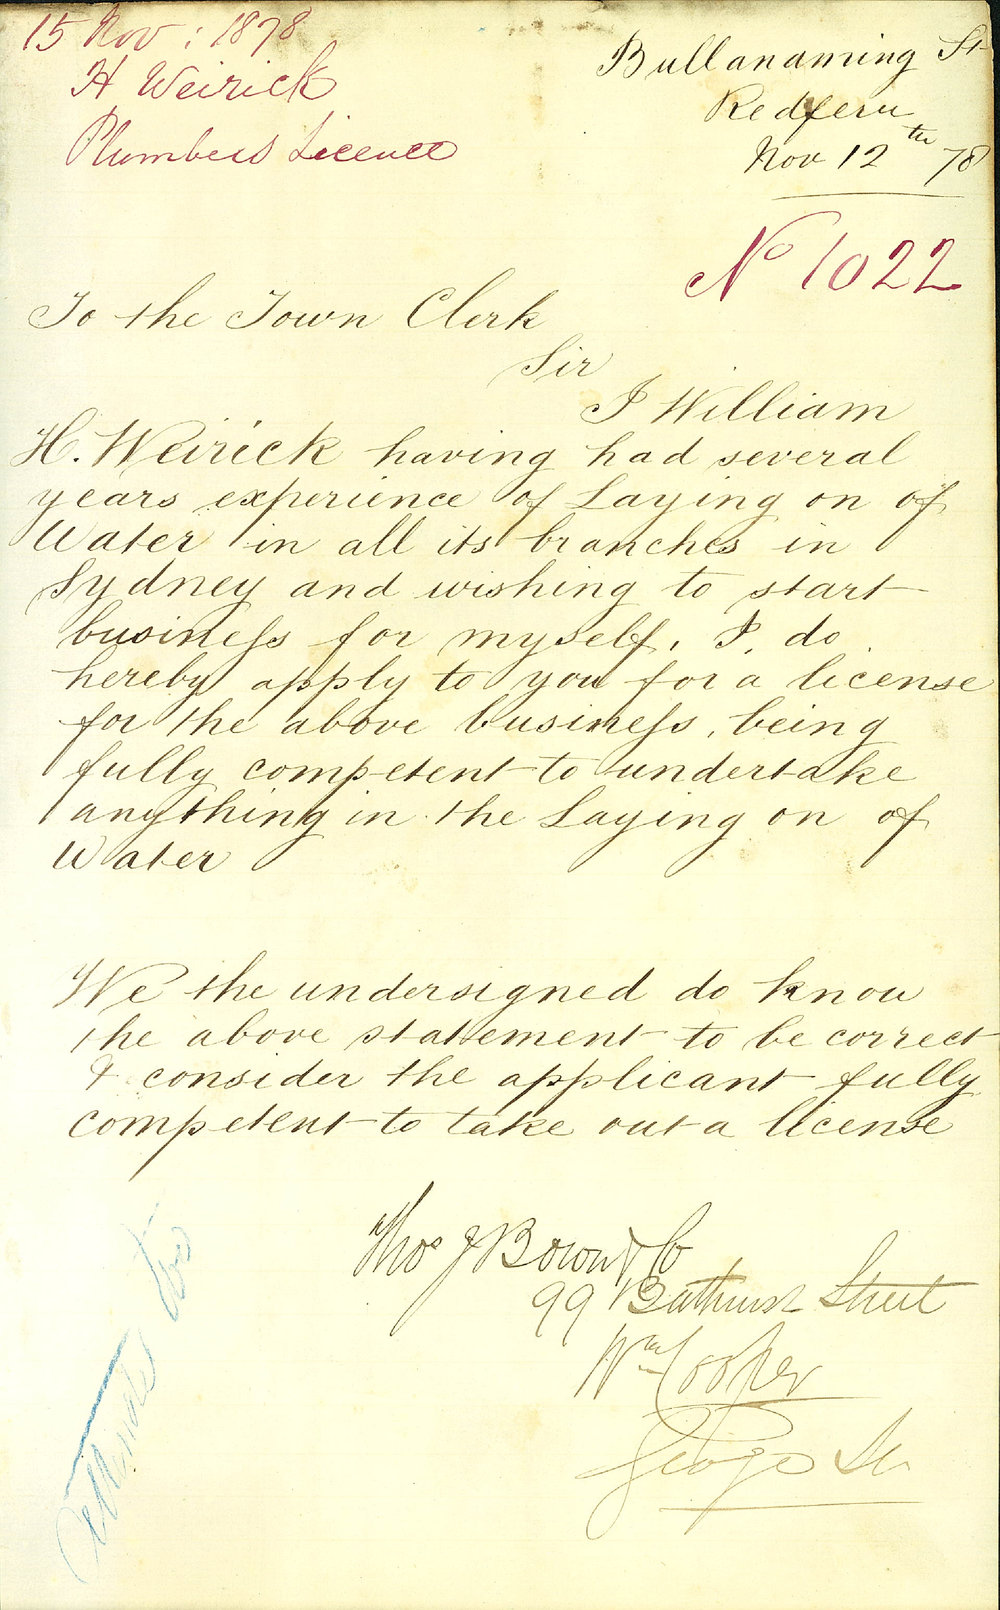 15 Nov: 1878
H Weirick
Plumbers Licence
Bullanaming St
Redfern
Nov 12th 78
No 1022
To the Town Clerk
Sir
I William
H. Weirick having had several
years experience of Laying on of
Water in all its branches in
Sydney and wishing to start
business for myself, I, do
hereby apply to you for a license
for the above business, being
fully competent to undertake
anything in the Laying on of
Water
We the undersigned do know
the above statement to be correct
& consider the applicant fully
competent to take out a license
Thos J Bown & Co
99 Bathurst Street
Wm Cooper
George St
Attended to